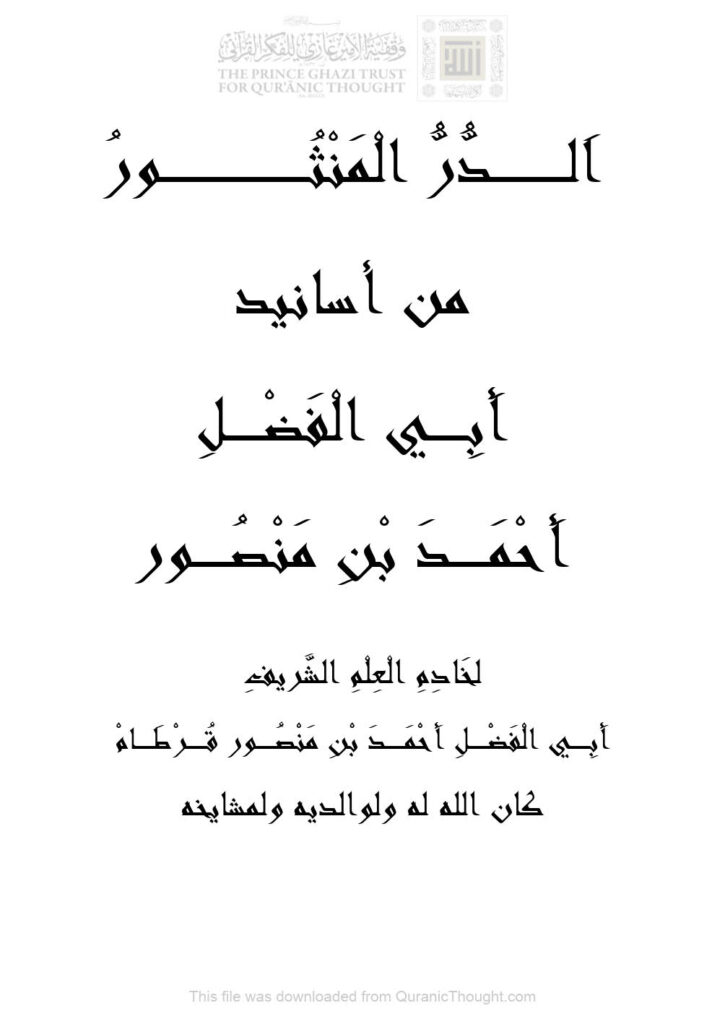 وقفية الأمير غازي للفكر القرآني
THE PRINCE GHAZI TRUST
FOR QUR'ĀNIC THOUGHT
اَلـــدُّرُّ الْمَنْثُـــــورُ
من أسانيد
أَبِــي الْفَضْــلِ
أَحْمَــدَ بْنِ مَنْصُــور
لخَادِمِ الْعِلْمِ الشَّريفِ
أَبِــي الْفَضْــلِ أَحْمَــدَ بْنِ مَنْصُــور قُــرْطَــامْ
كان الله له ولوالديه ولمشايخه
This file was downloaded from QuranicThought.com